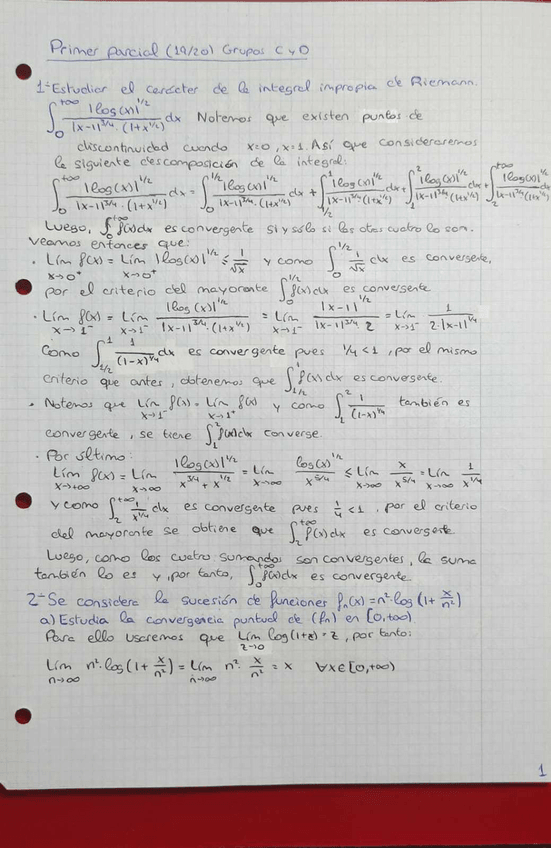 Primer parcial (19/20) Grupos C y D
1- Estudiar el carácter de la integral impropia de Riemann.
∫_0^{+∞} |log(x)|^{1/2} / (|x-1|^{3/4}·(1+x^{1/4})) dx Notemos que existen puntos de
discontinuidad cuando x=0, x=1. Así que consideraremos
la siguiente descomposición de la integral:
∫_0^{+∞} |log(x)|^{1/2} / (|x-1|^{3/4}·(1+x^{1/4})) dx = ∫_0^{1/2} |log(x)|^{1/2} / (|x-1|^{3/4}·(1+x^{1/4})) dx + ∫_{1/2}^1 |log(x)|^{1/2} / (|x-1|^{3/4}(1+x^{1/4})) dx + ∫_1^2 |log(x)|^{1/2} / (|x-1|^{3/4}(1+x^{1/4})) dx + ∫_2^{+∞} |log(x)|^{1/2} / (|x-1|^{3/4}(1+x^{1/4})) dx
Luego, ∫_0^{+∞} f(x)dx es convergente si y sólo si las otras cuatro lo son.
Veamos entonces que:
· Lím_{x→0⁺} f(x) = Lím_{x→0⁺} |log(x)|^{1/2} ≤ 1/√x y como ∫_0^{1/2} 1/√x dx es convergente,
por el criterio del mayorante ∫_0^{1/2} f(x)dx es convergente
· Lím_{x→1⁻} f(x) = Lím_{x→1⁻} |log(x)|^{1/2} / (|x-1|^{3/4}·(1+x^{1/4})) = Lím_{x→1⁻} |x-1|^{1/2} / (|x-1|^{3/4} 2) = Lím_{x→1⁻} 1 / (2·|x-1|^{1/4})
Como ∫_{1/2}^1 1/(1-x)^{1/4} dx es convergente pues 1/4<1, por el mismo
criterio que antes, obtenemos que ∫_{1/2}^1 f(x)dx es convergente.
· Notemos que Lím_{x→1⁻} f(x) = Lím_{x→1⁺} f(x) y como ∫_1^2 1/(1-x)^{1/4} también es
convergente, se tiene ∫_1^2 f(x)dx converge.
· Por último:
Lím_{x→+∞} f(x) = Lím_{x→∞} |log(x)|^{1/2} / (x^{3/4} + x^{1/2}) = Lím_{x→∞} log(x)^{1/2} / x^{5/4} ≤ Lím_{x→∞} x / x^{5/4} = Lím_{x→∞} 1 / x^{1/4}
y como ∫_2^{+∞} 1/x^{1/4} dx es convergente pues 1/4 <1, por el criterio
del mayorante se obtiene que ∫_2^{+∞} f(x)dx es convergente
Luego, como los cuatro sumandos son convergentes, la suma
también lo es y, por tanto, ∫_0^{+∞} f(x)dx es convergente.
2- Se considera la sucesión de funciones fₙ(x)=n²·log(1+x/n²)
a) Estudia la convergencia puntual de (fₙ) en [0,+∞)
Para ello usaremos que Lím_{z→0} log(1+z)=z, por tanto:
Lím_{n→∞} n²·log(1+x/n²) = Lím_{n→∞} n²·x/n² = x ∀x∈[0,+∞)
1